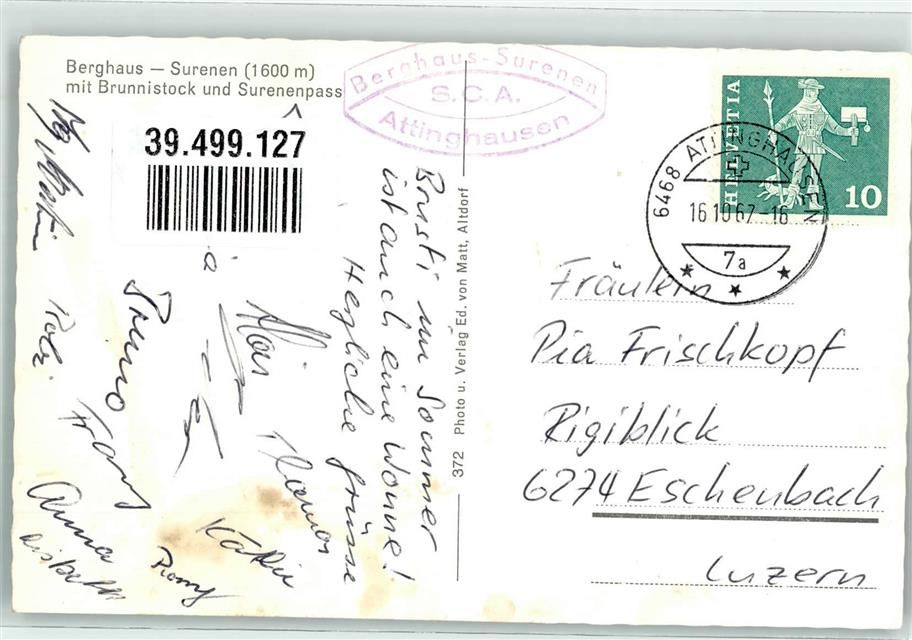 Berghaus — Surenen (1600 m)
mit Brunnistock und Surenenpass
39.499.127
Berghaus-Surenen
S.C.A.
Attinghausen
HELVETIA
10
6468 ATTINGHAUSEN
16.10.67-16
7a
Brüsti im Sommer
ist auch eine Wonne!
Herzliche Grüsse
Bruno
Franz
Anna
Lisbeth
Romy
372 Photo u. Verlag Ed. von Matt, Altdorf
Fräulein
Pia Frischkopf
Rigiblick
6274 Eschenbach
Luzern